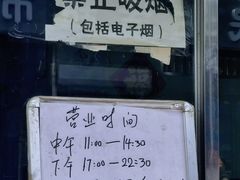 禁止吸烟
(包括电子烟)
营业时间
中午 11:00—14:30
下午 17:00—22:30